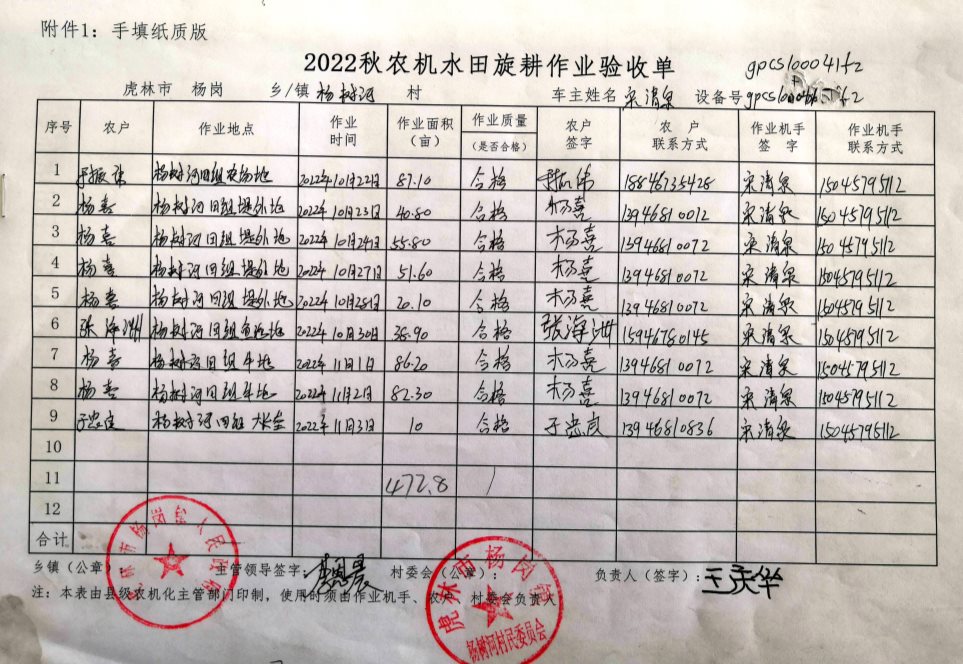 附件1：手填纸质版
2022秋农机水田旋耕作业验收单
gpcsl00041f2
虎林市 杨岗 乡/镇 杨树河 村 车主姓名 宋清泉 设备号 gpcsl
序号 农户 作业地点 作业时间 作业面积（亩） 作业质量（是否合格） 农户签字 农户联系方式 作业机手签字 作业机手联系方式
1 杨树河田组 地 2022年10月22日 87.10 合格 18846735428 宋清泉 15045795112
2 杨喜 杨树河田组堤外地 2022年10月23日 40.80 合格 杨喜 13946810072 宋清泉 15045795112
3 杨喜 杨树河田组堤外地 2022年10月24日 55.80 合格 杨喜 13946810072 宋清泉 15045795112
4 杨喜 杨树河田组堤外地 2022年10月27日 51.60 合格 杨喜 13946810072 宋清泉 15045795112
5 杨喜 杨树河田组堤外地 2022年10月28日 20.10 合格 杨喜 13946810072 宋清泉 15045795112
6 张海洲 杨树河田组鱼池地 2022年10月30日 38.90 合格 张海洲 15946780145 宋清泉 15045795112
7 杨喜 杨树河田组 地 2022年11月1日 86.20 合格 杨喜 13946810072 宋清泉 15045795112
8 杨喜 杨树河田组 地 2022年11月2日 82.30 合格 杨喜 13946810072 宋清泉 15045795112
9 杨树河田组 2022年11月3日 10 合格 13946810836 宋清泉 15045795112
10
11 472.8 /
12
合计
乡镇（公章）： 主管领导签字： 村委会（公章）： 负责人（签字）：
注：本表由县级农机化主管部门印制，使用时须由作业机手、农户、村委会负责人
虎林市杨岗镇人民政府
虎林市杨岗镇
杨树河村民委员会